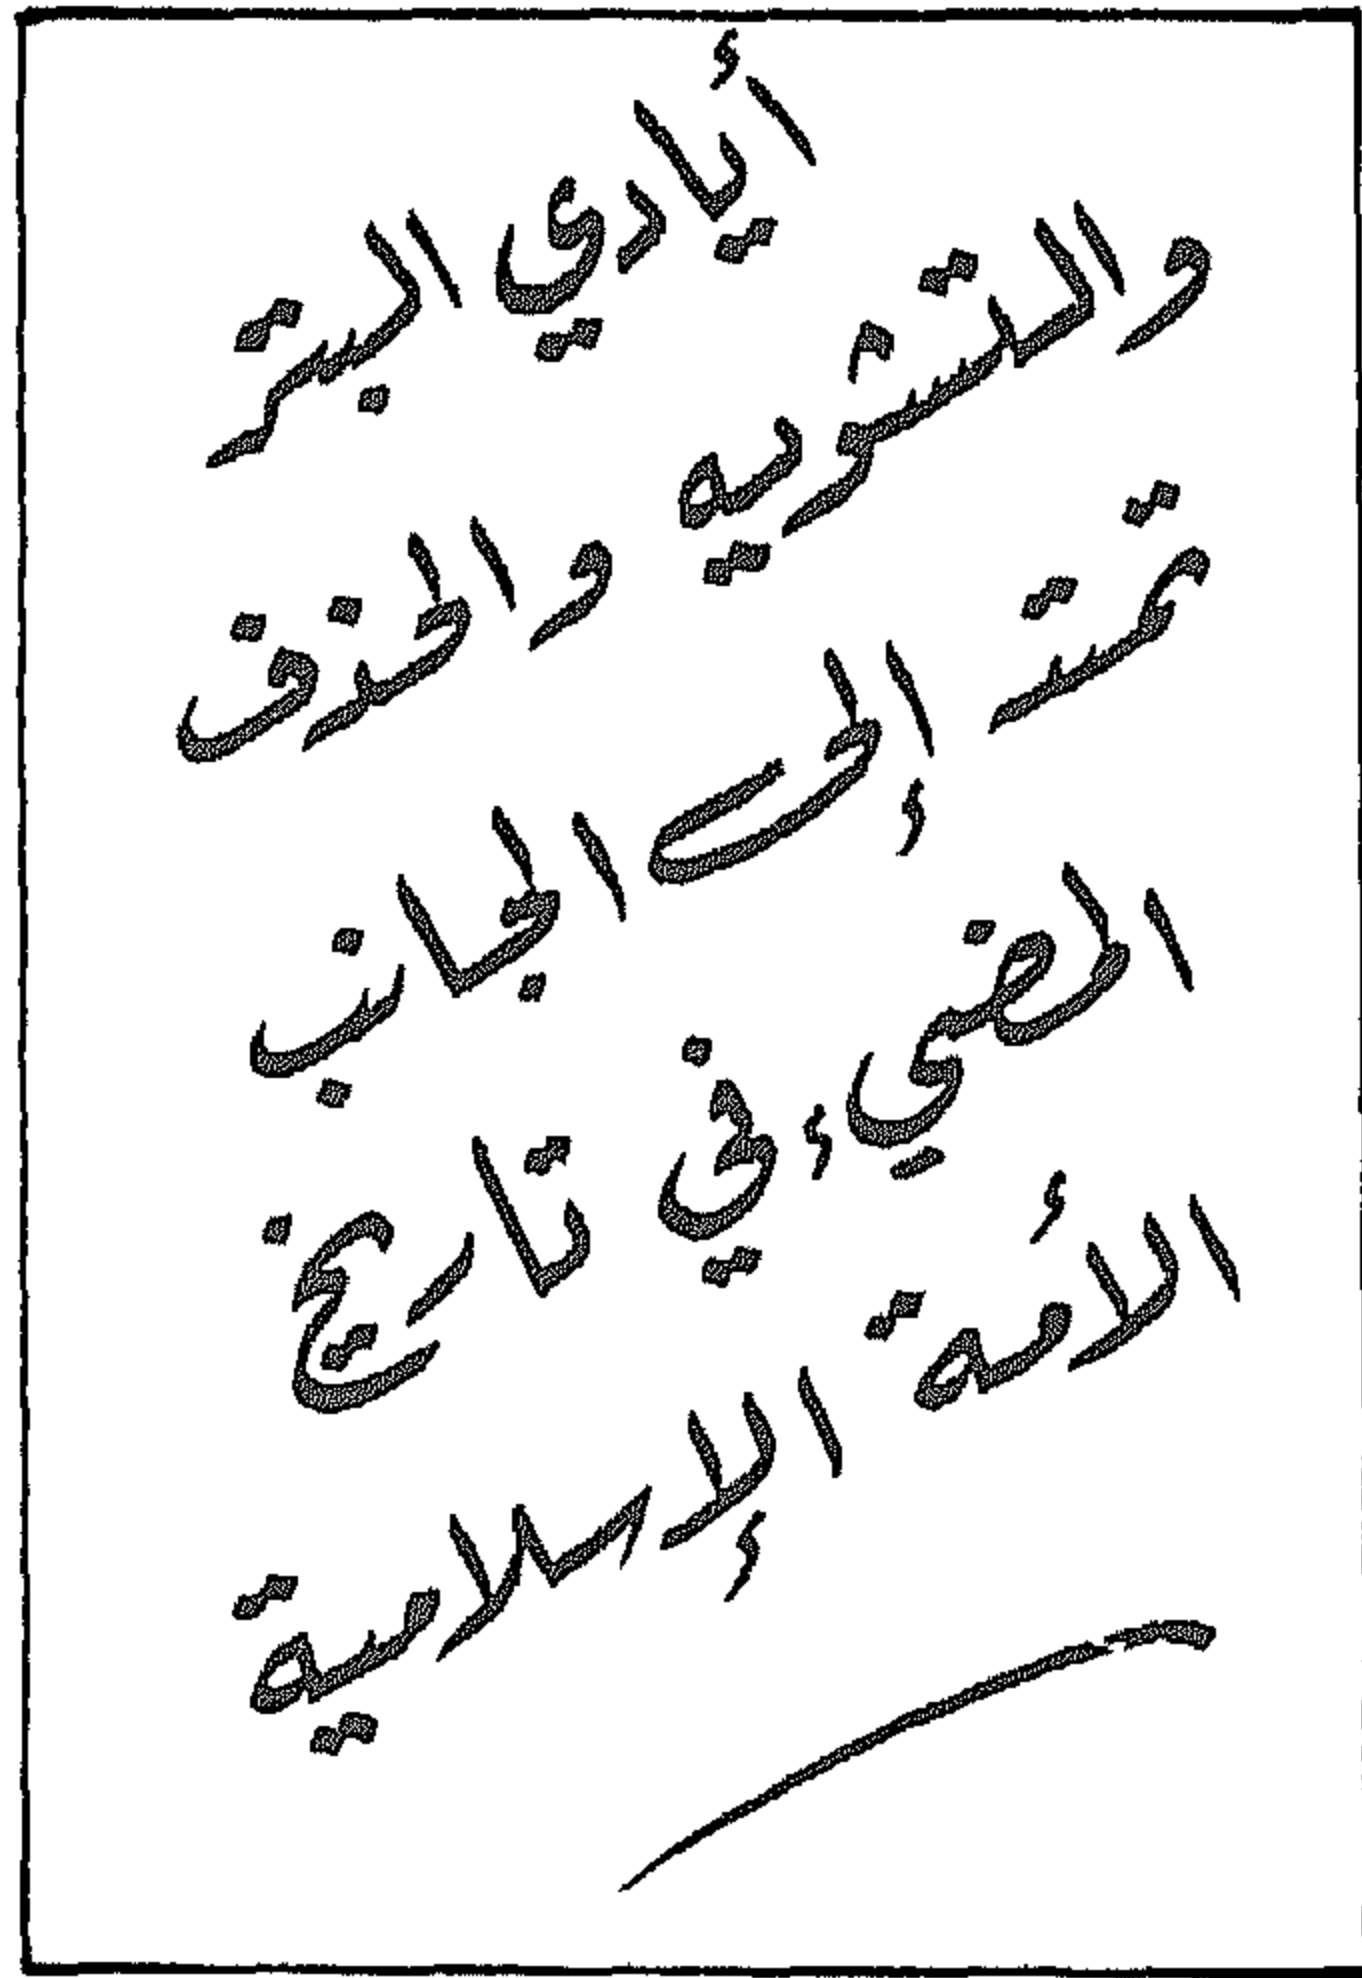 أيادي البتر
والتشويه والحذف
تمتد إلى الجانب
المضيء في تاريخ
الأمة الإسلامية